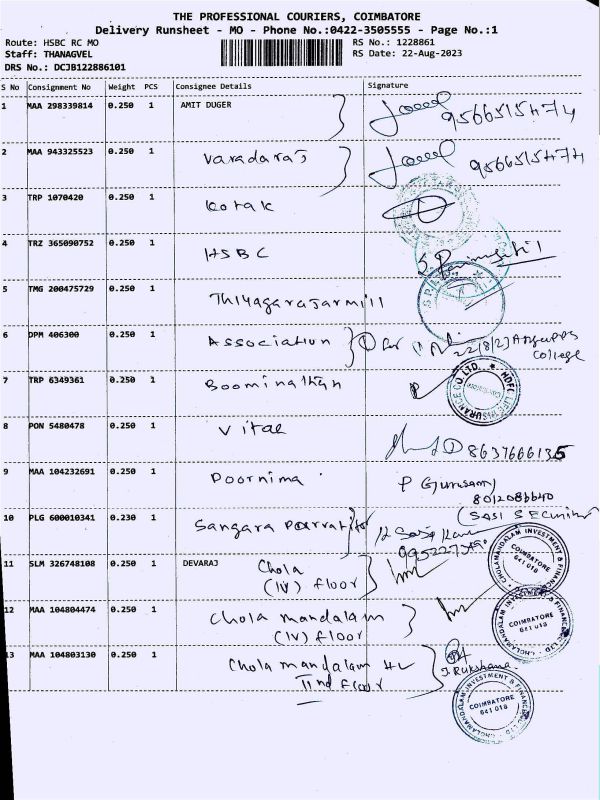 THE PROFESSIONAL COURIERS, COIMBATORE
Delivery Runsheet - MO - Phone No.:0422-3505555 - Page No.:1
Route: HSBC RC MO
RS No.: 1228861
Staff: THANAGVEL
RS Date: 22-Aug-2023
DRS No.: DCJB122886101
S No Consignment No Weight PCS Consignee Details Signature
1 MAA 298339814 0.250 1 AMIT DUGER 9566515474
2 MAA 943325523 0.250 1 Varadaraj 9566515474
3 TRP 1070420 0.250 1 Kotak
4 TRZ 365090752 0.250 1 HSBC
5 TMG 200475729 0.250 1 Thiyagarajarmill
6 DPM 406300 0.250 1 Association
22/8/23
College
7 TRP 6349361 0.250 1 Boominathan
HDFC LIFE INSURANCE CO LTD.
8 PON 5480478 0.250 1 Vital 8637666135
9 MAA 104232691 0.250 1 Poornima P Gurusamy
8012086640
10 PLG 600010341 0.230 1 Sangara
11 SLM 326748108 0.250 1 DEVARAJ Chola
(IV) floor
CHOLAMANDALAM INVESTMENT & FINANCE
COIMBATORE
641 018
12 MAA 104804474 0.250 1 Chola mandalam
(IV) floor
CHOLAMANDALAM INVESTMENT & FINANCE CO. LTD
COIMBATORE
641 018
13 MAA 104803130 0.250 1 Chola mandalam HL
IInd floor
J. Rukshana
CHOLAMANDALAM INVESTMENT & FINANCE CO. LTD
COIMBATORE
641 018